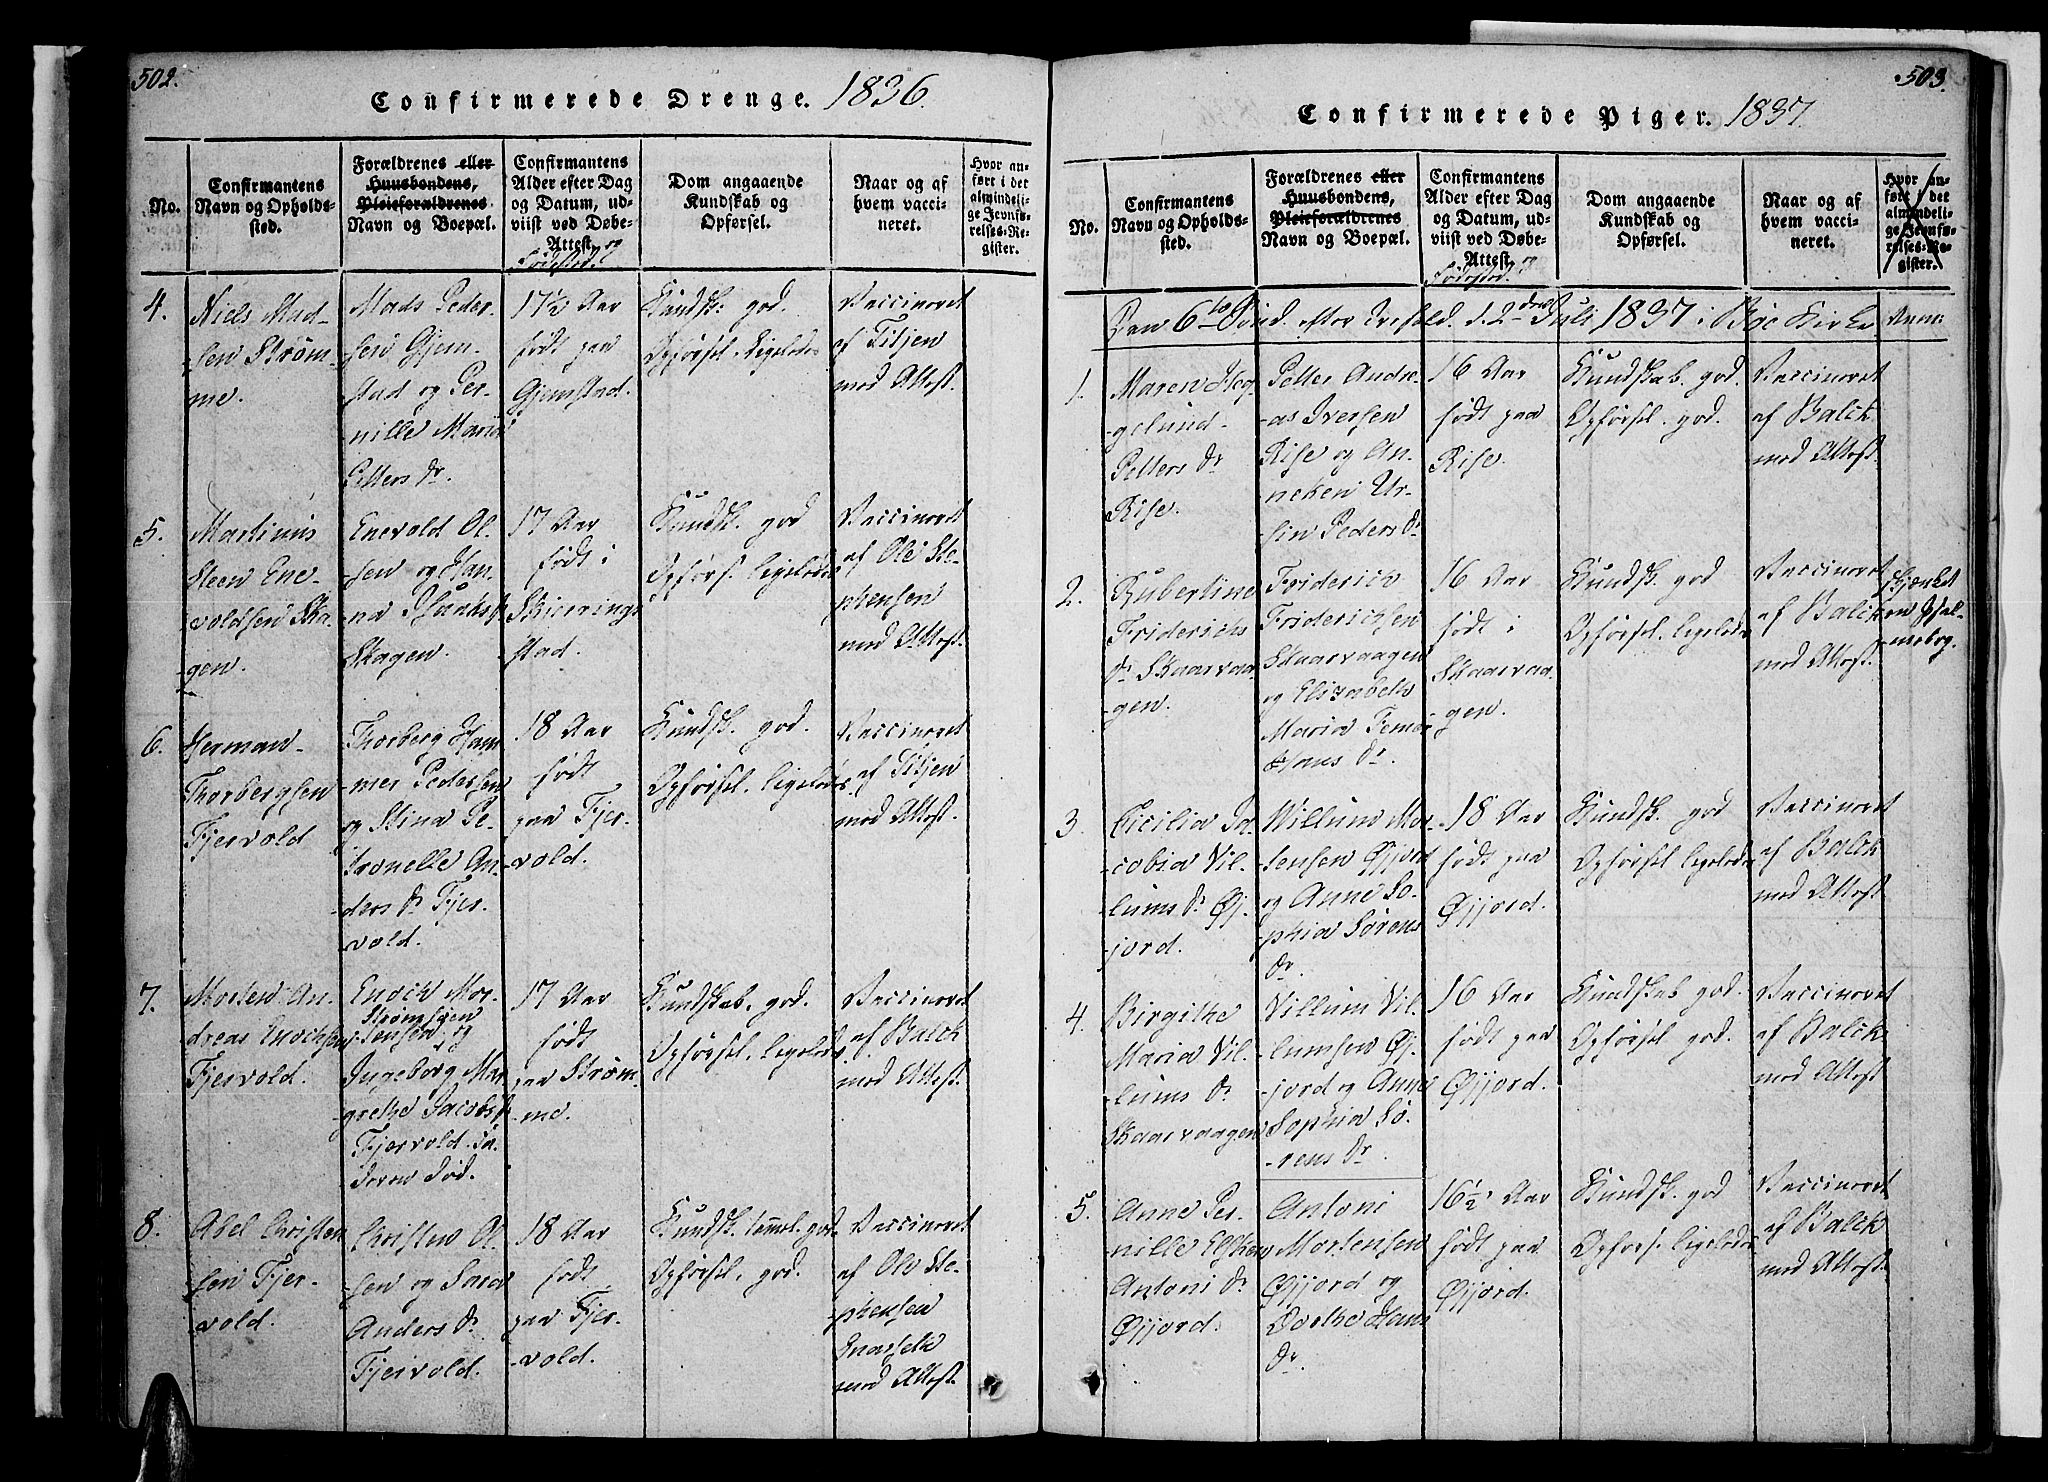 502.
Confirmerede Drenge. 1836.
No.
Confirmantens
Navn og Opholds-
sted.
Forældrenes eller
Huusbondens,
Pleieforældrenes
Navn og Boepæl.
Confirmantens
Alder efter Dag
og Datum, ud-
viist ved Døbe-
Attest. og
Fødested.
Dom angaaende
Kundskab og
Opførsel.
Naar og af
hvem vacci-
neret.
Hvor an-
ført i det
almindeli-
ge Jevnfø-
relses-Re-
gister.
4.
Niels Mad-
sen Strøm-
me.
Mads Peder-
sen Gjem-
stad og Per-
nille Maria
Petters Dr.
17½ Aar
født paa
Gjemstad.
Kundsk. god.
Opførsel. ligeledes
Vaccineret
af Tetjen
med Attest.
5.
Martinus
Steen Ene-
voldsen Ska-
gen.
Enevold Ol-
sen og Han-
na Isaaks
Skagen.
17 Aar
født i
Skierring-
stad.
Kundsk. god
Opførs. ligeledes
Vaccineret
af Ole Ste-
phensen
med Attest.
6.
Herman
Thorbergsen
Fjervold
Thorberg Ham-
mer Pedersen
og Stina Pe-
tronelle An-
ders Dr. Fjer-
vold.
18 Aar
født
paa Fjer-
vold.
Kundsk. god.
Opførsel. ligeledes.
Vaccineret
af Titjen
med Attest.
7.
Morten An-
dreas Enochsen
Fjervold.
Enoch Mor-
Strømsøen
tensen og
Ingeborg Mar-
grethe Jacobs Dr
Fjervold. Fa-
deren død.
17 Aar
født
paa Strøm-
me.
Kundskab. god.
Opførsel. ligeledes
Vaccineret
af Balck
med Attest.
8.
Abel Christen-
sen Fjer-
vold.
Christen Ol-
sen og Sara
Anders Dr.
Fjervold.
18 Aar
født
paa Fjer-
vold.
Kundsk. temmel. god.
Opførsel. god.
Vaccineret
af Ole Ste-
phensen
med Attest.
503.
Confirmerede Piger. 1837.
No.
Confirmantens
Navn og Opholds-
sted.
Forældrenes eller
Huusbondens,
Pleieforældrenes
Navn og Boepæl.
Confirmantens
Alder efter Dag
og Datum, ud-
viist ved Døbe-
Attest. og
Fødested.
Dom angaaende
Kundskab og
Opførsel.
Naar og af
hvem vacci-
neret.
Hvor an-
ført i det
almindeli-
ge Jevnfø-
relses-Re-
gister.
Den 6te Sønd. efter Trefold. d. 2den Juli 1837 i Bøe Kirke
Anm:
1.
Maren Heg-
gelund
Petters Dr
Rise.
Petter Andre-
as Iversen
Rise og An-
neken Ur-
sin Peders Dr
16 Aar
født paa
Rise.
Kundskab. god.
Opførsel. god.
Vaccineret
af Balck
med Attest.
2.
Rubertine
Friderichs
Dr. Skaarvaa-
gen.
Friderich
Friderichsen
Skaarvaagen
og Elisabeth
Maria Femer
Hans Dr.
16 Aar
født i
Skaarvaa-
gen.
Kundsk. god
Opførsel. ligeledes
Vaccineret
af Balck
med Attest.
skjenket
en Psal-
mebog.
3.
Cicilia Ja-
cobia Vil-
lums Dr. Øj-
jord.
Willum Mor-
tensen Øjjord
og Anne So-
phia Sørens
Dr.
18 Aar
født paa
Øjjord.
Kundsk. god
Opførsel ligeledes
Vaccineret
af Balck
med Attest.
4.
Birgithe
Maria Vil-
lums Dr
Skaarvaagen
Villum Vil-
lumsen Øj-
jord og Anne
Sophia Sø-
rens Dr.
16 Aar
født paa
Øjjord.
Kundskab god.
Opførsel god.
Vaccineret
af Balck
med Attest
5.
Anne Per-
nille Elsken
Antoni Dr
Øjjord.
Antoni
Mortensen
Øjjord og
Dorthe Hans
Dr.
16½ Aar
født paa
Øjjord.
Kundsk. god
Opførs. ligeledes
Vaccineret
af Balck
med Attest.